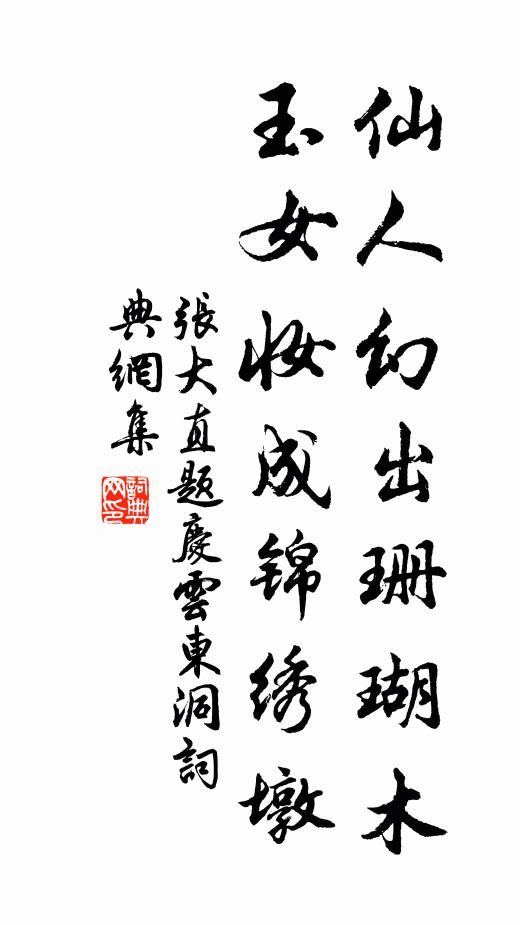 仙人幻出珊瑚木
玉女妆成锦绣墩
張大直題慶雲東洞詞
典網集
詞典网印